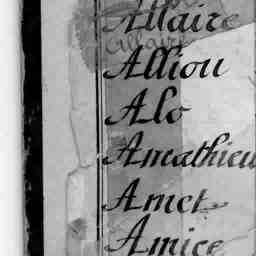 Allaire
Allaire
Alliou
Alo
Amathieu
Amet
Amice